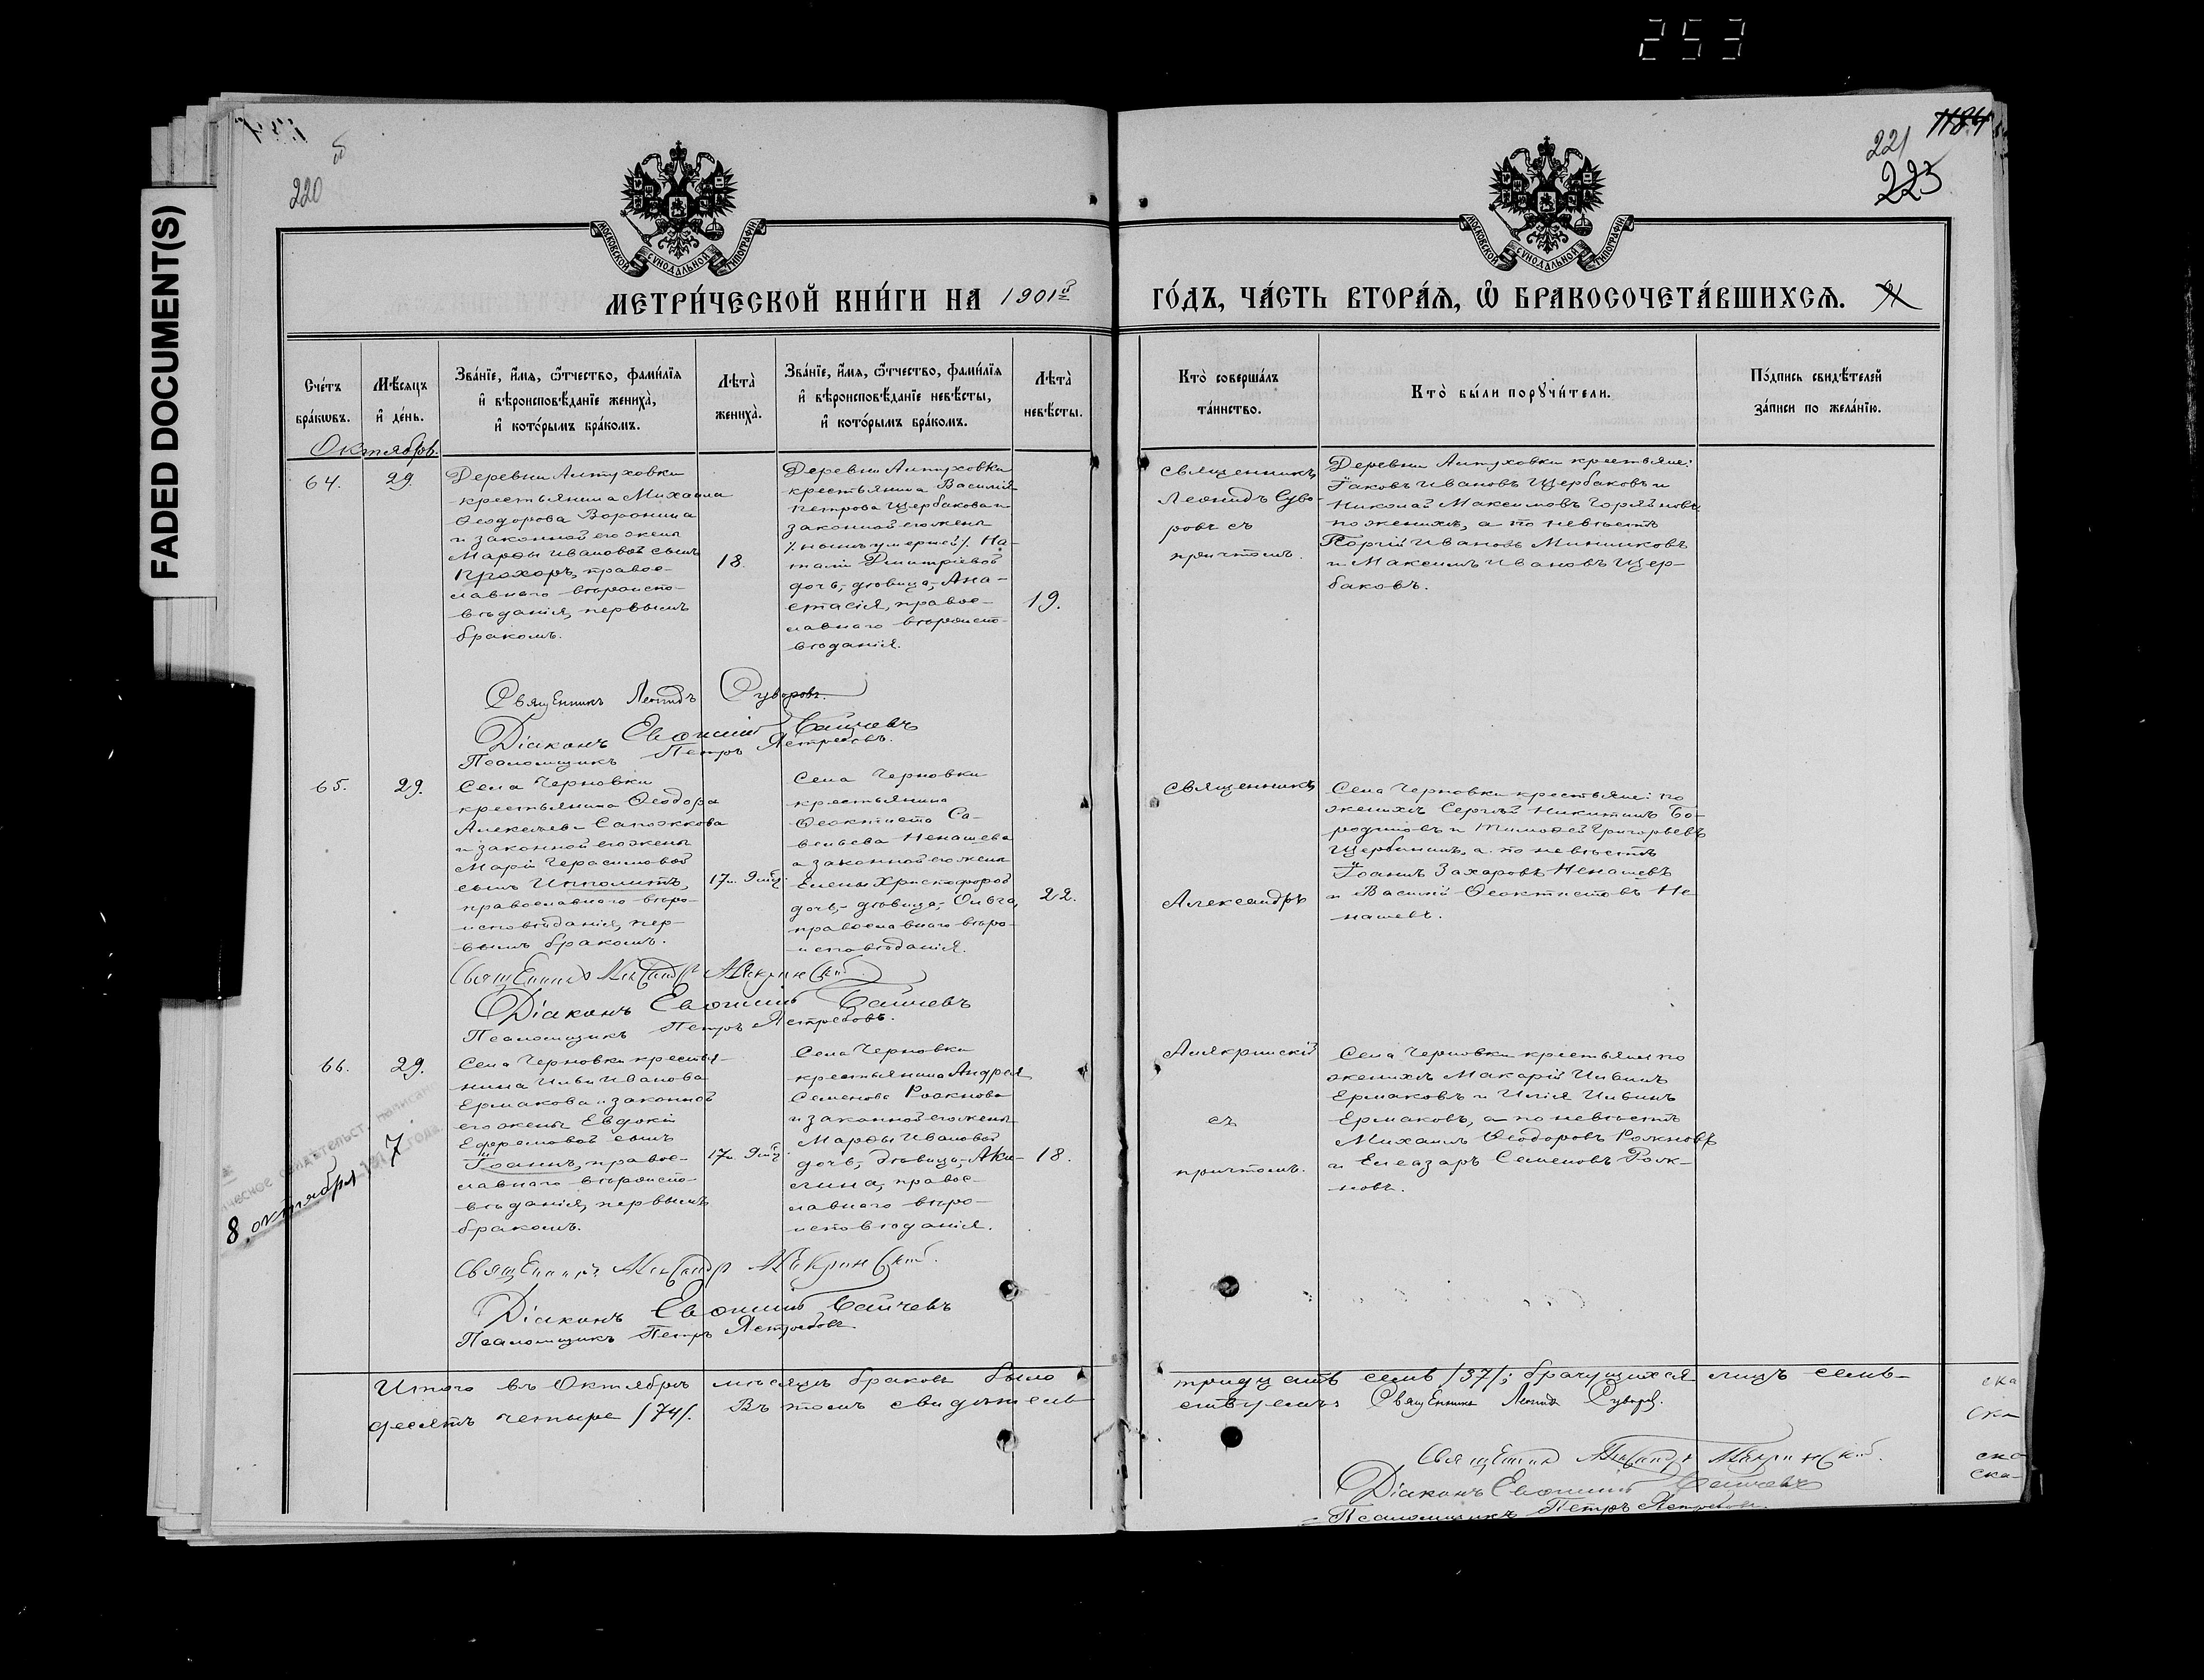 253
FADED DOCUMENT(S)
220
об
1184
221
225
МОСКОВСКОЙ СѴНОДАЛЬНОЙ ТИПОГРАФІИ
МОСКОВСКОЙ СѴНОДАЛЬНОЙ ТИПОГРАФІИ
МЕТРИ́ЧЕСКОЙ КНИ́ГИ НА 1901й ГО́ДЪ, ЧА́СТЬ ВТОРА́Ѧ, Ѽ БРАКОСОЧЕТА́ВШИХСѦ.
Сче́тъ
бра́кѡвъ.
Мѣ́сѧцъ
и҆ де́нь.
Зва́нїе, и҆́мѧ, ѻ҆́тчество, фами́лїѧ
и҆ вѣроисповѣ́данїе жениха̀,
и҆ кото́рымъ бра́комъ.
Лѣта̀
жениха̀.
Зва́нїе, и҆́мѧ, ѻ҆́тчество, фами́лїѧ
и҆ вѣроисповѣ́данїе невѣ́сты,
и҆ кото́рымъ бра́комъ.
Лѣта̀
невѣ́сты.
Кто̀ соверша́лъ
та́инство.
Кто̀ бы́ли порꙋчи́тели.
По́дпись свидѣ́телей
за́писи по жела́нїю.
Октябрь.
64.
29.
Деревни Алтуховки
крестьянина Михаила
Ѳеодорова Воронина
и законной его жены
Марѳы Ивановой сынъ
Прохоръ, правос-
лавнаго вѣроиспо-
вѣданія, первымъ
бракомъ.
18.
Деревни Алтуховки
крестьянина Василія
Петрова Щербакова и
законной его жены
/. нынѣ умершей /. На-
таліи Дмитріевой
дочь,- дѣвица,- Ана-
стасія, правос-
лавнаго вѣроиспо-
вѣданія.
19.
Священникъ
Леонидъ Суво-
ровъ съ
причтомъ.
Деревни Алтуховки крестьяне:
Іаковъ Ивановъ Щербаковъ и
Николай Максимовъ Горяйновъ
по женихѣ, а по невѣстѣ
Георгій Ивановъ Мишиковъ
и Максимъ Ивановъ Щер-
баковъ.
Священникъ Леонидъ Суворовъ.
Діаконъ Евѳимій Зайчевъ
Псаломщикъ Петръ Ястребовъ.
65.
29.
Села Черновки
крестьянина Ѳеодора
Алексѣева Сапожкова
и законной его жены
Маріи Герасимовой
сынъ Ипполитъ,
православнаго вѣро-
исповѣданія, пер-
вымъ бракомъ.
17 л. 9 мѣц.
Села Черновки
крестьянина
Ѳеоктиста Са-
вельева Ненашева
и законной его жены
Елены Христофоров.
дочь,- дѣвица,- Ольга,
православнаго вѣро-
исповѣданія.
22.
Священникъ
Александръ
Села Черновки крестьяне: по
женихѣ Сергѣй Никитинъ Бо-
родиновъ и Тимоѳей Григорьевъ
Щербининъ, а по невѣстѣ
Іоаннъ Захаровъ Ненашевъ
и Василій Ѳеоктистовъ Не-
нашевъ.
Священникъ Александръ Алякринскій.
Діаконъ Евѳимій Зайчевъ
Псаломщикъ Петръ Ястребовъ.
66.
29.
Села Черновки крестья-
нина Ильи Иванова
Ермакова и законной
его жены Евдокіи
Ефремовой сынъ
Іоаннъ, правос-
лавнаго вѣроиспо-
вѣданія, первымъ
бракомъ.
17 л. 9 мѣц.
Села Черновки
крестьянина Андрея
Семенова Рожнова
и законной его жены
Марѳы Ивановой
дочь,- дѣвица,- Аки-
лина, правос-
лавнаго вѣро-
исповѣданія.
18.
Алякринскій
съ
причтомъ.
Села Черновки крестьяне по
женихѣ Макарій Ильинъ
Ермаковъ и Илія Ильинъ
Ермаковъ, а по невѣстѣ
Михаилъ Ѳеодоровъ Рожновъ
и Елеазаръ Семеновъ Рож-
новъ.
8 октября
7
Священникъ Александръ Алякринскій.
Діаконъ Евѳимій Зайчевъ
Псаломщикъ Петръ Ястребовъ
Итого въ Октябрѣ мѣсяцѣ браковъ было тридцать семь /37/; брачущихся лицъ семь-
десять четыре /74/. Въ томъ свидѣтельствуемъ: Священникъ Леонидъ Суворовъ.
Священникъ Александръ Алякринскій.
Діаконъ Евѳимій Зайчевъ
Псаломщикъ Петръ Ястребовъ.